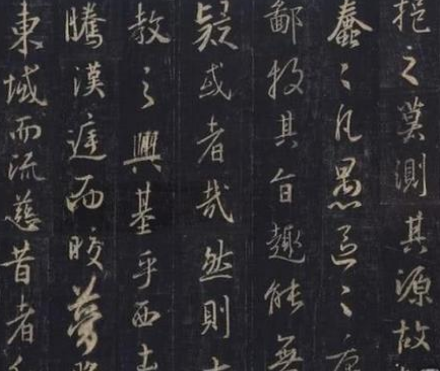 挹之莫測其源故
蠢〻凡愚區〻庸
鄙投其旨趣能無
疑或者哉然則
教之興基乎西土
騰漢庭而皎夢
東域而流慈昔者